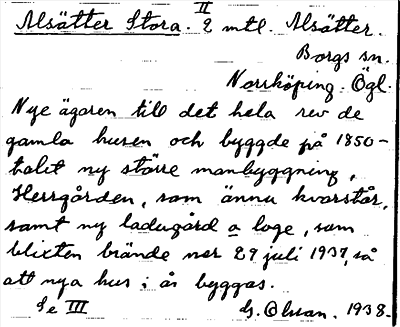 II
Alsätter Stora. 2 mtl. Alsätter.
Borgs sn.
Norrköping. Ögl.
Nye ägaren till det hela rev de
gamla husen och byggde på 1850-
talet ny större manbyggning,
Herrgården, som ännu kvarstår,
samt ny ladugård o loge, som
blixten brände ner 29 juli 1937, så
att nya hus i år byggas.
Se III G. Olsson. 1938.